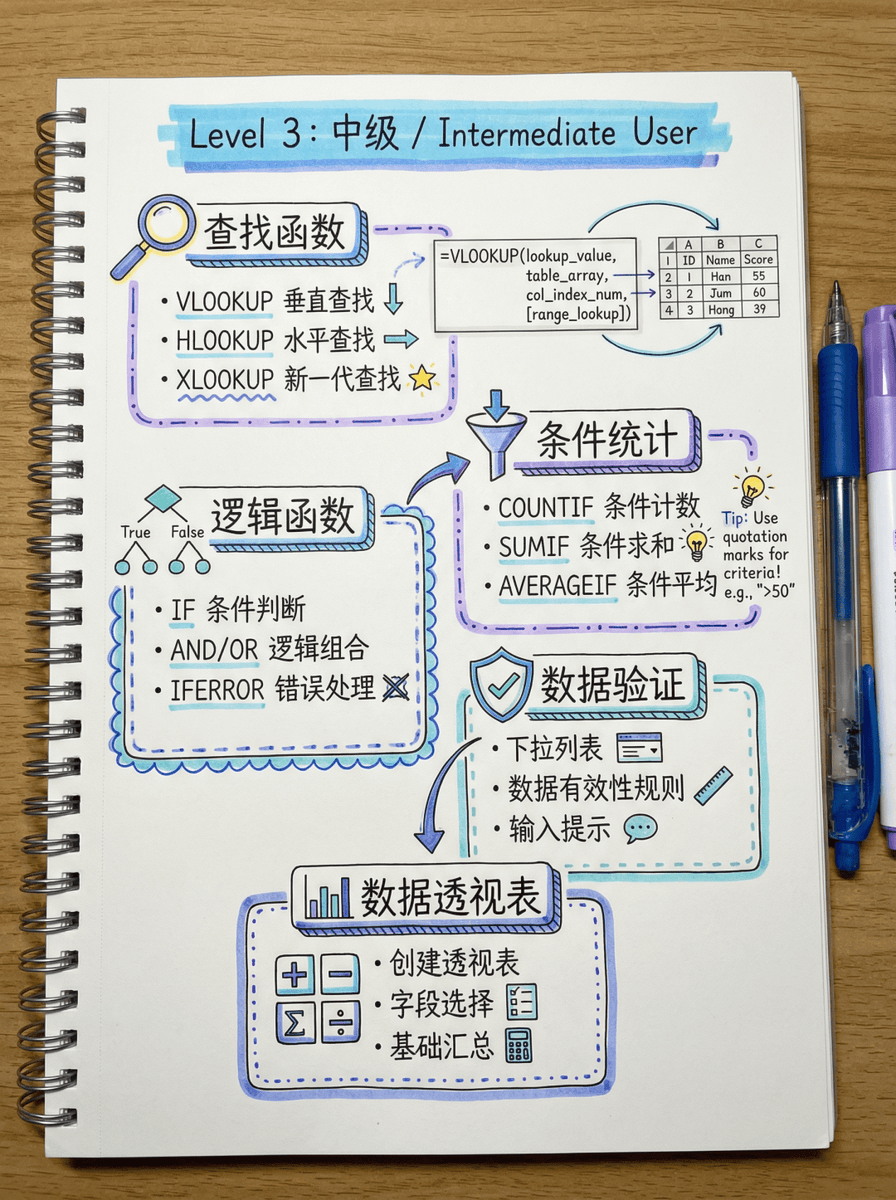 Level 3: 中级 / Intermediate User
查找函数
• VLOOKUP 垂直查找
• HLOOKUP 水平查找
• XLOOKUP 新一代查找
=VLOOKUP(lookup_value,
table_array,
col_index_num,
[range_lookup])
A B C
1 ID Name Score
2 1 Han 55
3 2 Jum 60
4 3 Hong 39
条件统计
• COUNTIF 条件计数
• SUMIF 条件求和
• AVERAGEIF 条件平均
Tip: Use
quotation
marks for
criteria!
e.g., ">50"
逻辑函数
True False
• IF 条件判断
• AND/OR 逻辑组合
• IFERROR 错误处理
数据验证
• 下拉列表
• 数据有效性规则
• 输入提示
数据透视表
+ −
Σ ÷
• 创建透视表
• 字段选择
• 基础汇总